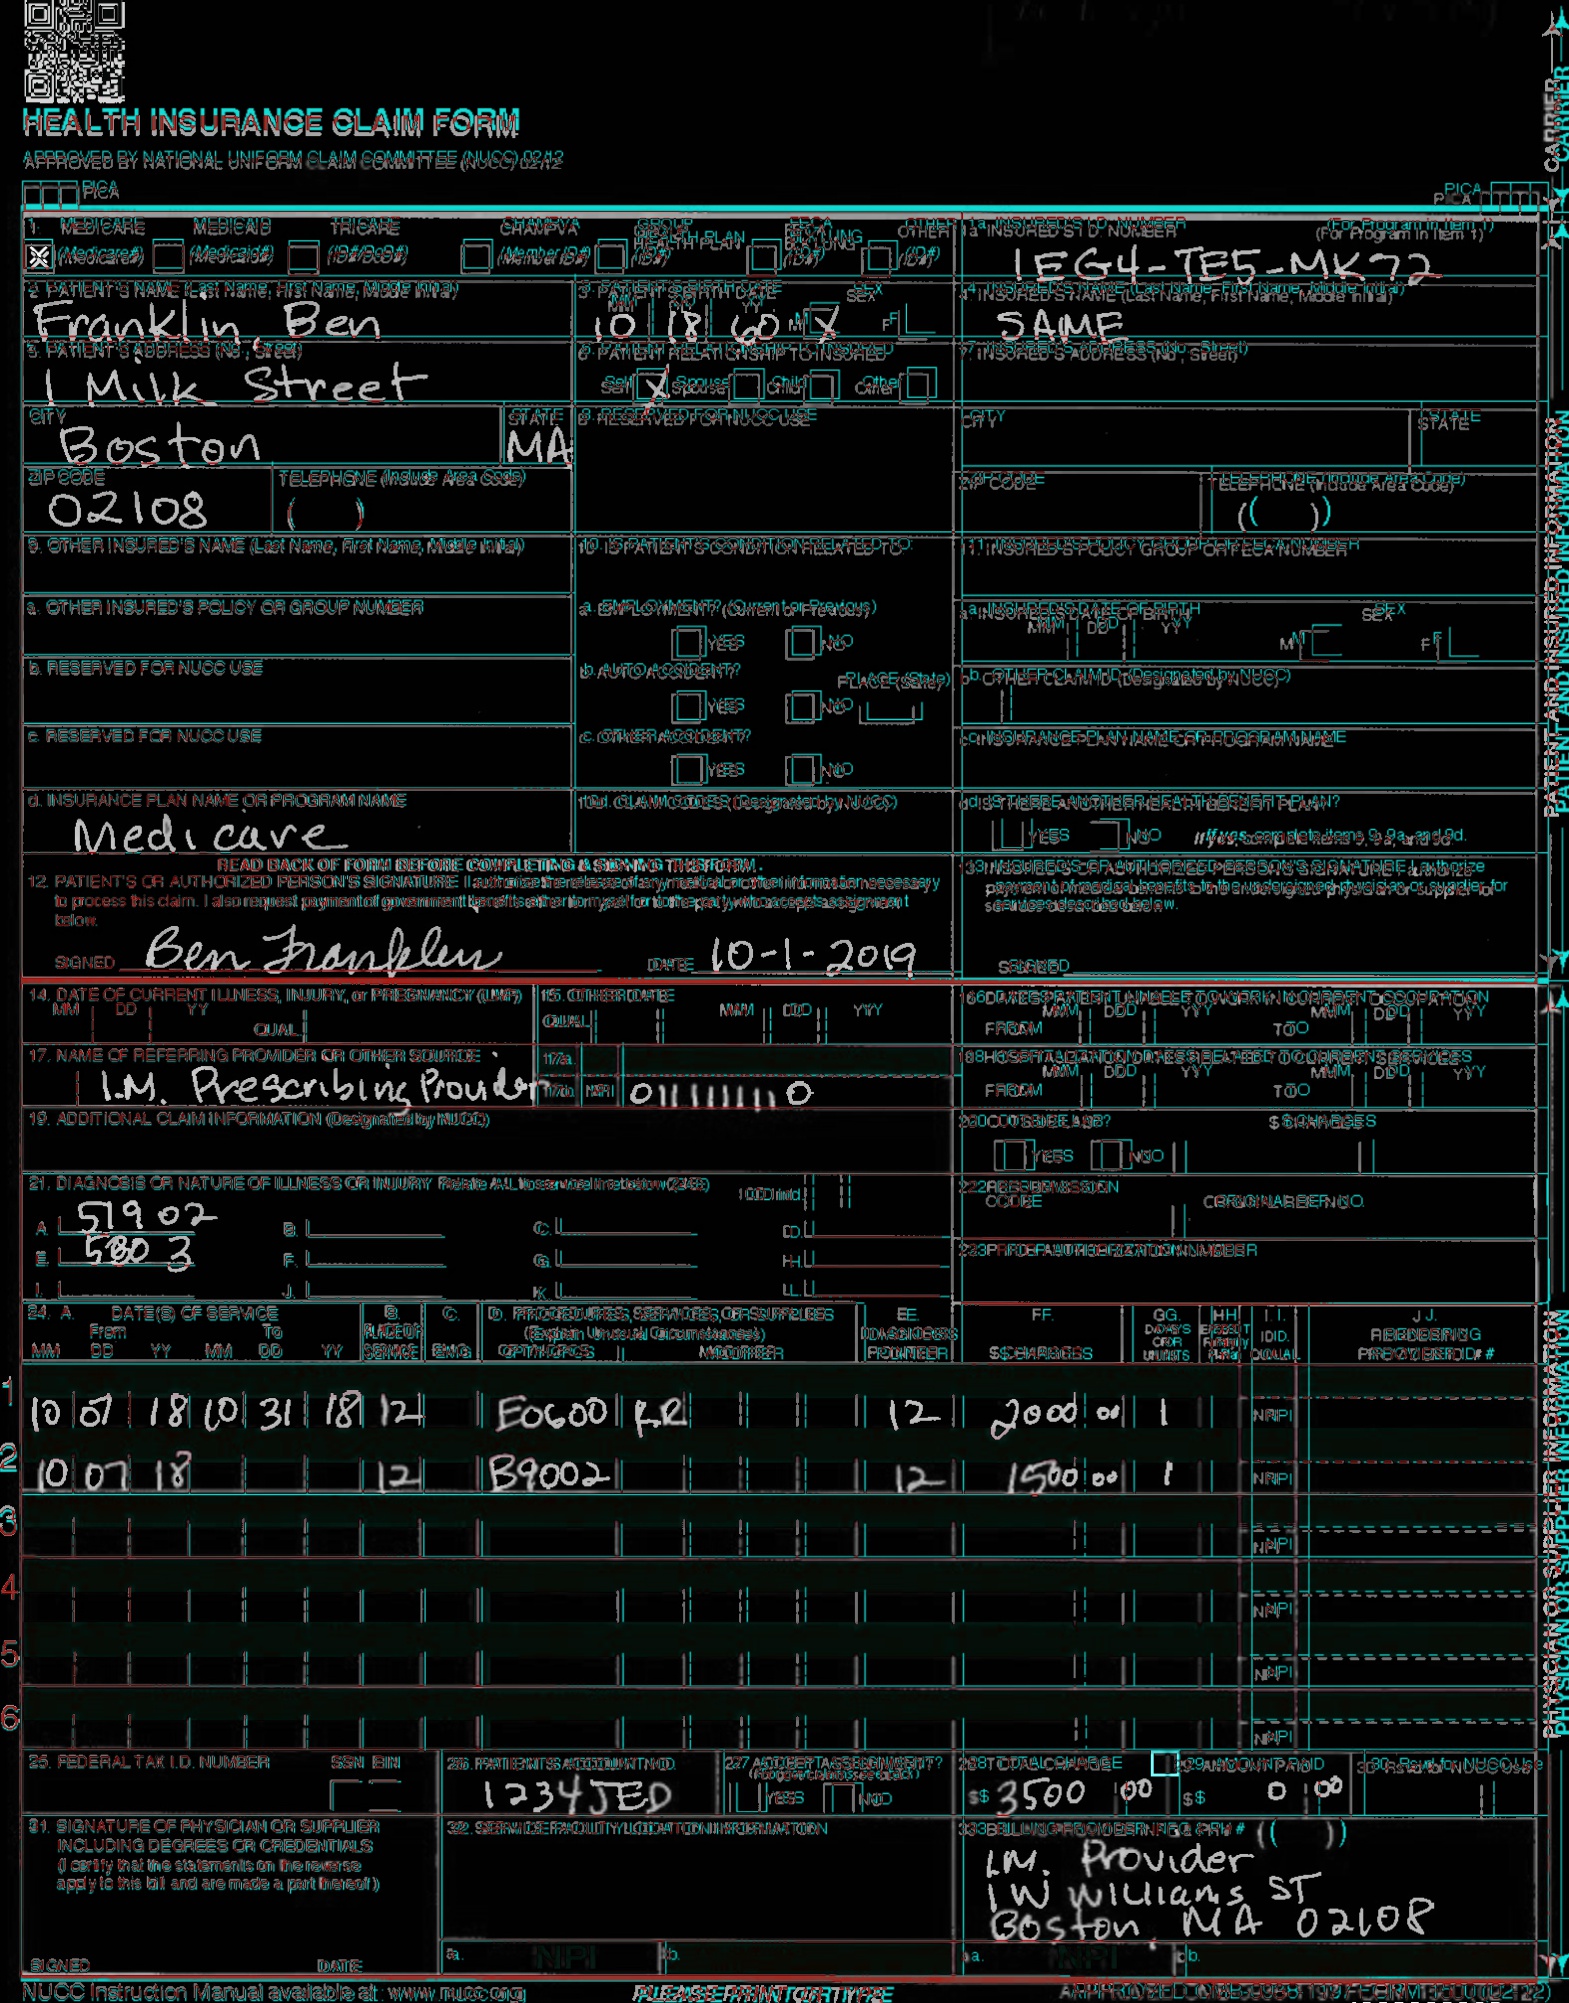 HEALTH INSURANCE CLAIM FORM
APPROVED BY NATIONAL UNIFORM CLAIM COMMITTEE (NUCC) 02/12
PICA
PICA
CARRIER
1. MEDICARE MEDICAID TRICARE CHAMPVA GROUP HEALTH PLAN FECA BLK LUNG OTHER
(Medicare#) (Medicaid#) (ID#/DoD#) (Member ID#) (ID#) (ID#) (ID#)
1a. INSURED'S I.D. NUMBER (For Program in Item 1)
1EG4-TE5-MK72
2. PATIENT'S NAME (Last Name, First Name, Middle Initial)
Franklin, Ben
3. PATIENT'S BIRTH DATE SEX
MM DD YY
10 18 60 M X F
4. INSURED'S NAME (Last Name, First Name, Middle Initial)
SAME
5. PATIENT'S ADDRESS (No., Street)
1 Milk Street
6. PATIENT RELATIONSHIP TO INSURED
Self X Spouse Child Other
7. INSURED'S ADDRESS (No., Street)
CITY
Boston
STATE
MA
8. RESERVED FOR NUCC USE
CITY
STATE
ZIP CODE
02108
TELEPHONE (Include Area Code)
( )
ZIP CODE
TELEPHONE (Include Area Code)
( )
9. OTHER INSURED'S NAME (Last Name, First Name, Middle Initial)
10. IS PATIENT'S CONDITION RELATED TO:
11. INSURED'S POLICY GROUP OR FECA NUMBER
a. OTHER INSURED'S POLICY OR GROUP NUMBER
a. EMPLOYMENT? (Current or Previous)
YES NO
a. INSURED'S DATE OF BIRTH SEX
MM DD YY M F
b. RESERVED FOR NUCC USE
b. AUTO ACCIDENT? PLACE (State)
YES NO
b. OTHER CLAIM ID (Designated by NUCC)
c. RESERVED FOR NUCC USE
c. OTHER ACCIDENT?
YES NO
c. INSURANCE PLAN NAME OR PROGRAM NAME
d. INSURANCE PLAN NAME OR PROGRAM NAME
Medicare
10d. CLAIM CODES (Designated by NUCC)
d. IS THERE ANOTHER HEALTH BENEFIT PLAN?
YES NO If yes, complete items 9, 9a, and 9d.
READ BACK OF FORM BEFORE COMPLETING & SIGNING THIS FORM.
12. PATIENT'S OR AUTHORIZED PERSON'S SIGNATURE I authorize the release of any medical or other information necessary
to process this claim. I also request payment of government benefits either to myself or to the party who accepts assignment
below.
SIGNED Ben Franklin DATE 10-1-2019
13. INSURED'S OR AUTHORIZED PERSON'S SIGNATURE I authorize
payment of medical benefits to the undersigned physician or supplier for
services described below.
SIGNED
PATIENT AND INSURED INFORMATION
14. DATE OF CURRENT ILLNESS, INJURY, or PREGNANCY (LMP)
MM DD YY QUAL.
15. OTHER DATE
QUAL. MM DD YY
16. DATES PATIENT UNABLE TO WORK IN CURRENT OCCUPATION
MM DD YY MM DD YY
FROM TO
17. NAME OF REFERRING PROVIDER OR OTHER SOURCE
I.M. Prescribing Provider
17a.
17b. NPI 0111111110
18. HOSPITALIZATION DATES RELATED TO CURRENT SERVICES
MM DD YY MM DD YY
FROM TO
19. ADDITIONAL CLAIM INFORMATION (Designated by NUCC)
20. OUTSIDE LAB? $ CHARGES
YES NO
21. DIAGNOSIS OR NATURE OF ILLNESS OR INJURY Relate A-L to service line below (24E) ICD Ind.
A. 519 02 B. C. D.
E. 530 3 F. G. H.
I. J. K. L.
22. RESUBMISSION
CODE ORIGINAL REF. NO.
23. PRIOR AUTHORIZATION NUMBER
24. A. DATE(S) OF SERVICE B. C. D. PROCEDURES, SERVICES, OR SUPPLIES E. F. G. H. I. J.
From To PLACE OF (Explain Unusual Circumstances) DIAGNOSIS DAYS OR UNITS EPSDT Family Plan ID. RENDERING
MM DD YY MM DD YY SERVICE EMG CPT/HCPCS MODIFIER POINTER $ CHARGES QUAL. PROVIDER ID. #
1 10 07 18 10 31 18 12 E0600 RR 12 2000 00 1 NPI
2 10 07 18 12 B9002 12 1500 00 1 NPI
3 NPI
4 NPI
5 NPI
6 NPI
25. FEDERAL TAX I.D. NUMBER SSN EIN
26. PATIENT'S ACCOUNT NO.
1234JED
27. ACCEPT ASSIGNMENT?
YES NO
28. TOTAL CHARGE
$ 3500 00
29. AMOUNT PAID
$ 0 00
30. Rsvd for NUCC Use
31. SIGNATURE OF PHYSICIAN OR SUPPLIER
INCLUDING DEGREES OR CREDENTIALS
(I certify that the statements on the reverse
apply to this bill and are made a part thereof.)
SIGNED DATE
32. SERVICE FACILITY LOCATION INFORMATION
a. NPI b.
33. BILLING PROVIDER INFO & PH # ( )
I.M. Provider
1 W Williams ST
Boston, MA 02108
a. NPI b.
PHYSICIAN OR SUPPLIER INFORMATION
NUCC Instruction Manual available at: www.nucc.org
PLEASE PRINT OR TYPE
APPROVED OMB-0938-1197 FORM 1500 (02-12)